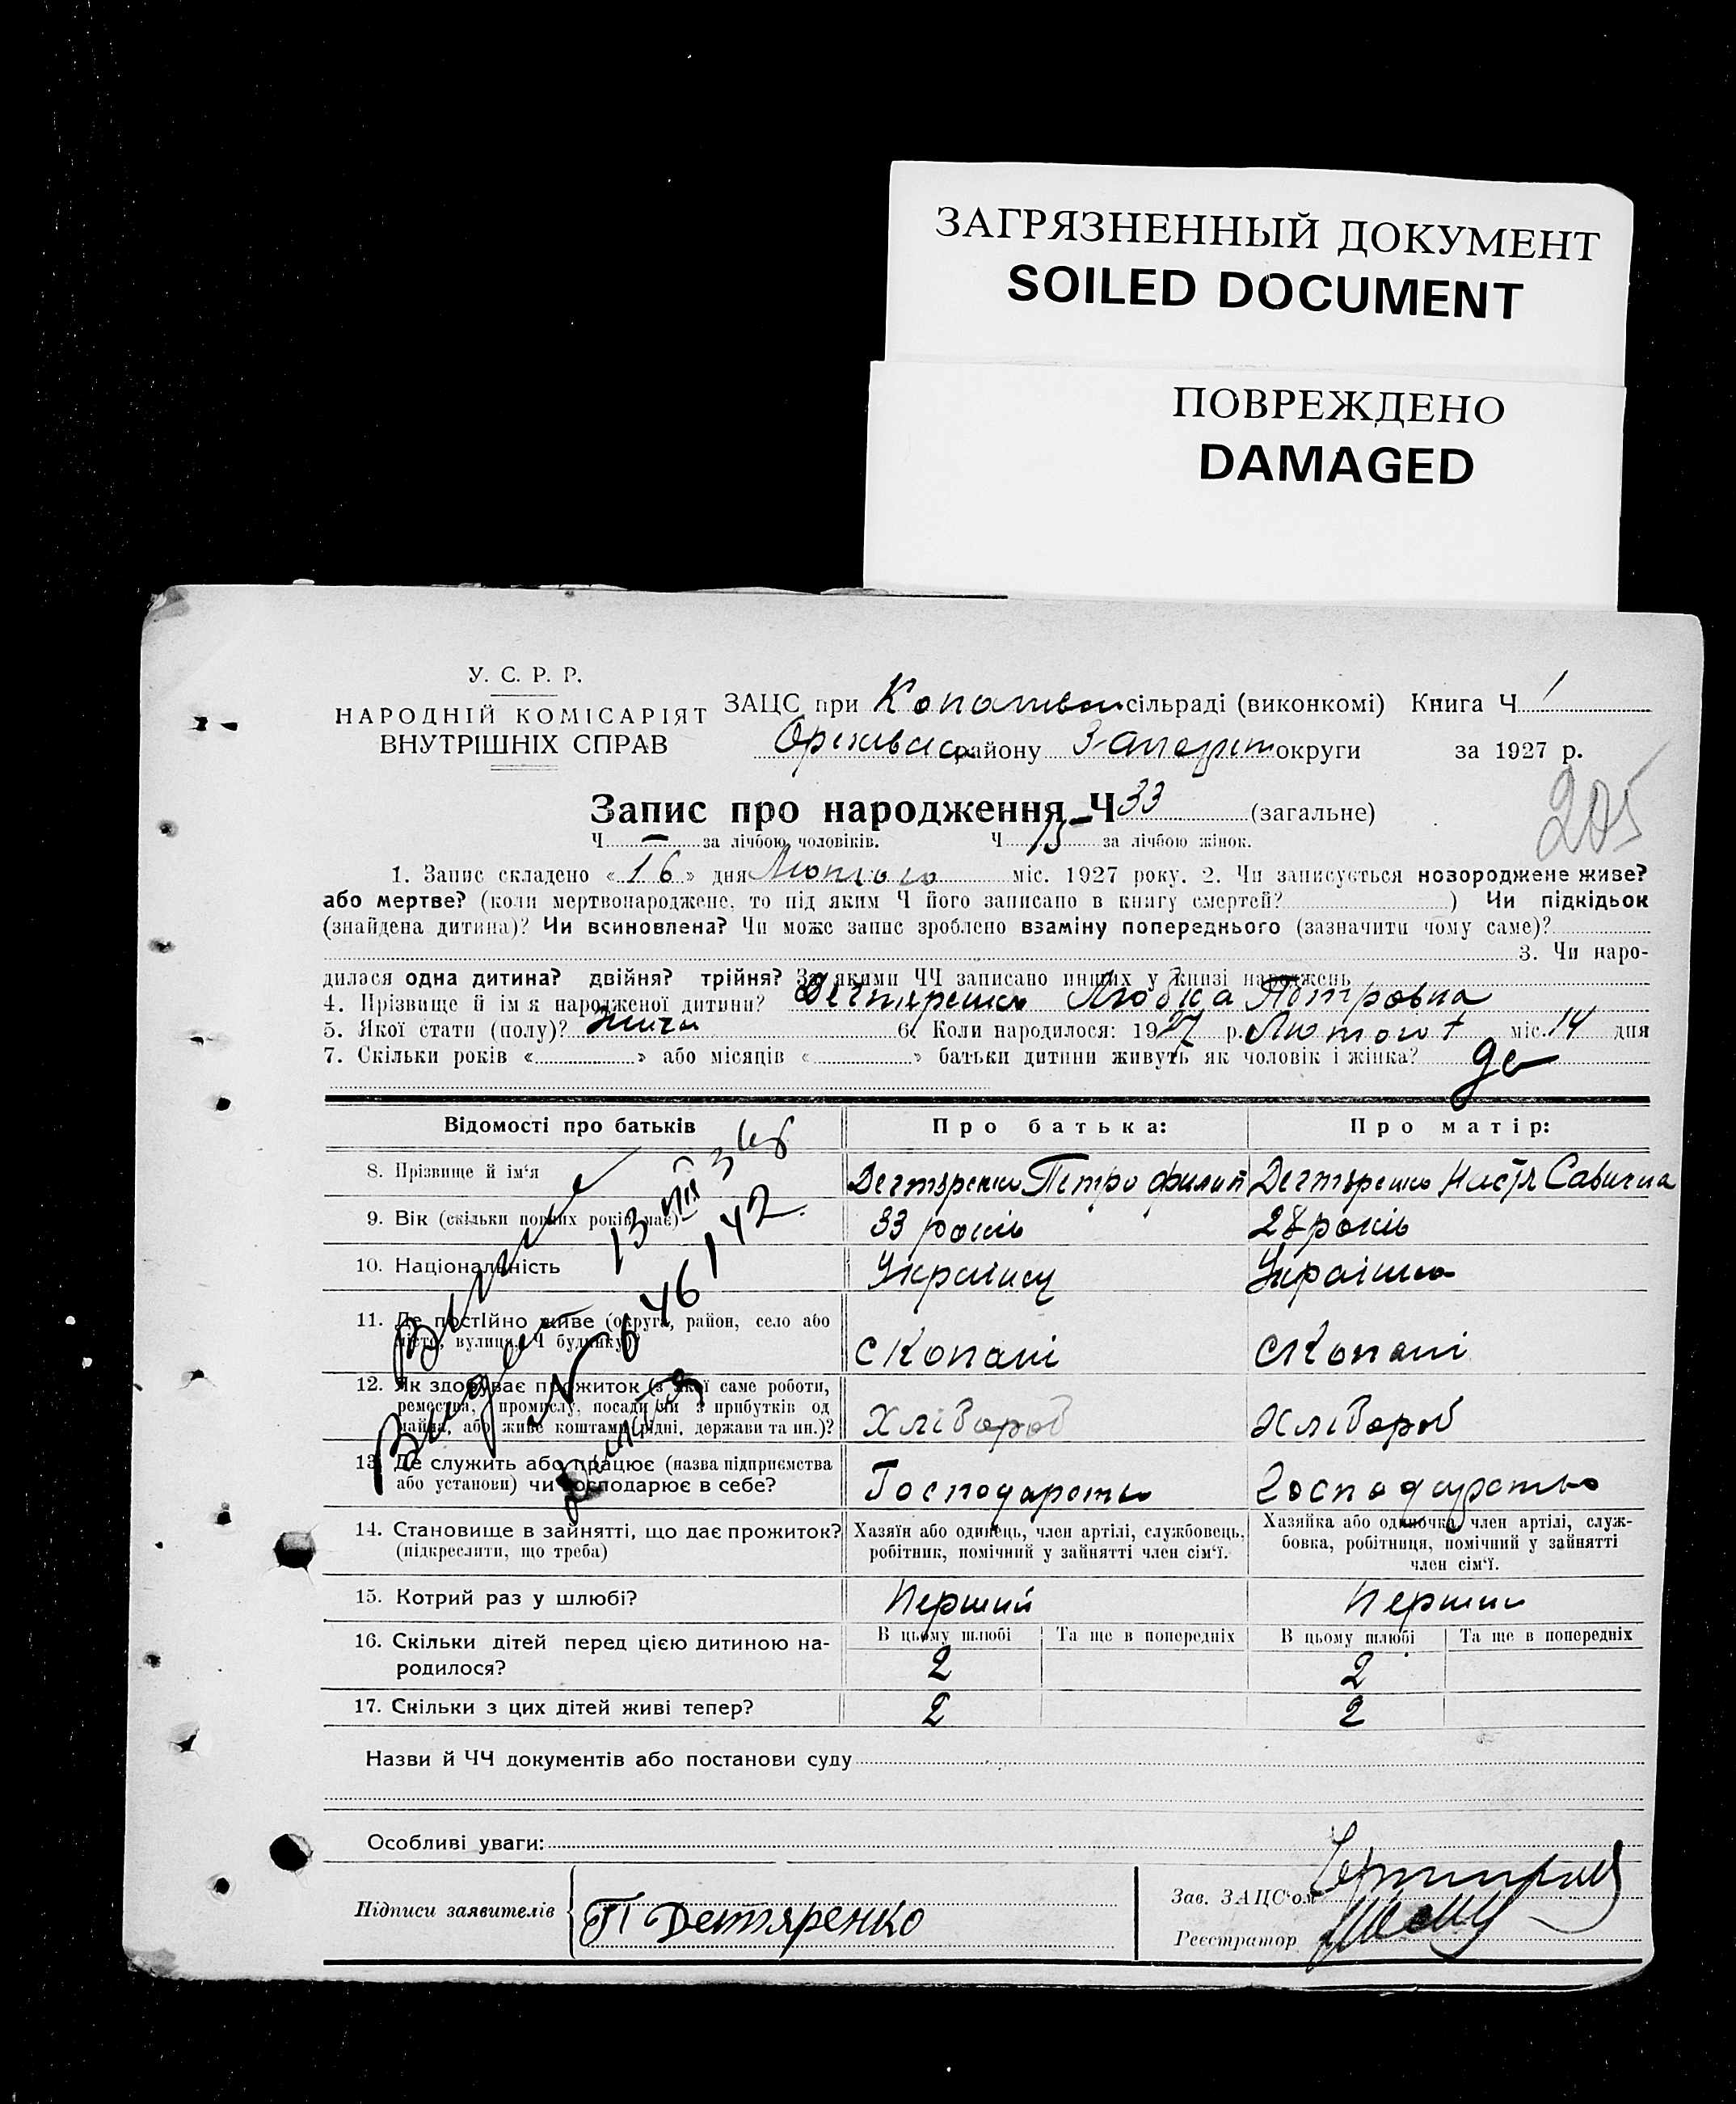 ЗАГРЯЗНЕННЫЙ ДОКУМЕНТ
SOILED DOCUMENT
ПОВРЕЖДЕНО
DAMAGED
У. С. Р. Р.
НАРОДНІЙ КОМІСАРІЯТ
ВНУТРІШНІХ СПРАВ
ЗАЦС при сільраді (виконкомі) Книга Ч 1
району округи за 1927 р.
205
Запис про народження Ч 33 (загальне)
Ч — за лічбою чоловіків. Ч 15 за лічбою жінок.
1. Запис складено «16» дня Лютого міс. 1927 року. 2. Чи записується новороджене живе?
або мертве? (коли мертвонароджене, то під яким Ч його записано в книгу смертей? ) Чи підкідьок
(знайдена дитина)? Чи всиновлена? Чи може запис зроблено взаміну попереднього (зазначити чому саме)?
3. Чи наро-
дилася одна дитина? двійня? трійня? За якими ЧЧ записано инших у книзі народжень
4. Прізвище й ім'я народженої дитини? Дегтяренко Любка Петровна
5. Якої стати (полу)? 6. Коли народилося: 1927 р. Лютого міс. 14 дня
7. Скільки років « » або місяців « » батьки дитини живуть як чоловік і жінка?
Відомості про батьків
Про батька:
Про матір:
8. Прізвище й ім'я
Дегтяренко Петро Филип
Дегтяренко Настя Савична
9. Вік (скільки повних років має)
33 років
28 років
10. Національність
Українец
Українка
11. Де постійно живе (округа, район, село або
місто, вулиця, Ч будинку)
с Копані
с Копані
12. Як здобуває прожиток (з якої саме роботи,
ремества, промислу, посади чи з прибутків од
майна, або живе коштами рідні, держави та ин.)?
Хлібороб
Хлібороб
13. Де служить або працює (назва підприємства
або установи) чи господарює в себе?
Господарство
Господарство
14. Становище в зайнятті, що дає прожиток?
(підкреслити, що треба)
Хазяїн або одинець, член артілі, службовець,
робітник, помічний у зайнятті член сім'ї.
Хазяйка або одиночка, член артілі, служ-
бовка, робітниця, помічний у зайнятті
член сім'ї.
15. Котрий раз у шлюбі?
Перший
Перший
16. Скільки дітей перед цією дитиною на-
родилося?
В цьому шлюбі
Та ще в попередніх
В цьому шлюбі
Та ще в попередніх
2
2
17. Скільки з цих дітей живі тепер?
2
2
Назви й ЧЧ документів або постанови суду
Особливі уваги:
Підписи заявителів
П Дегтяренко
Зав. ЗАЦС'ом
Реєстратор